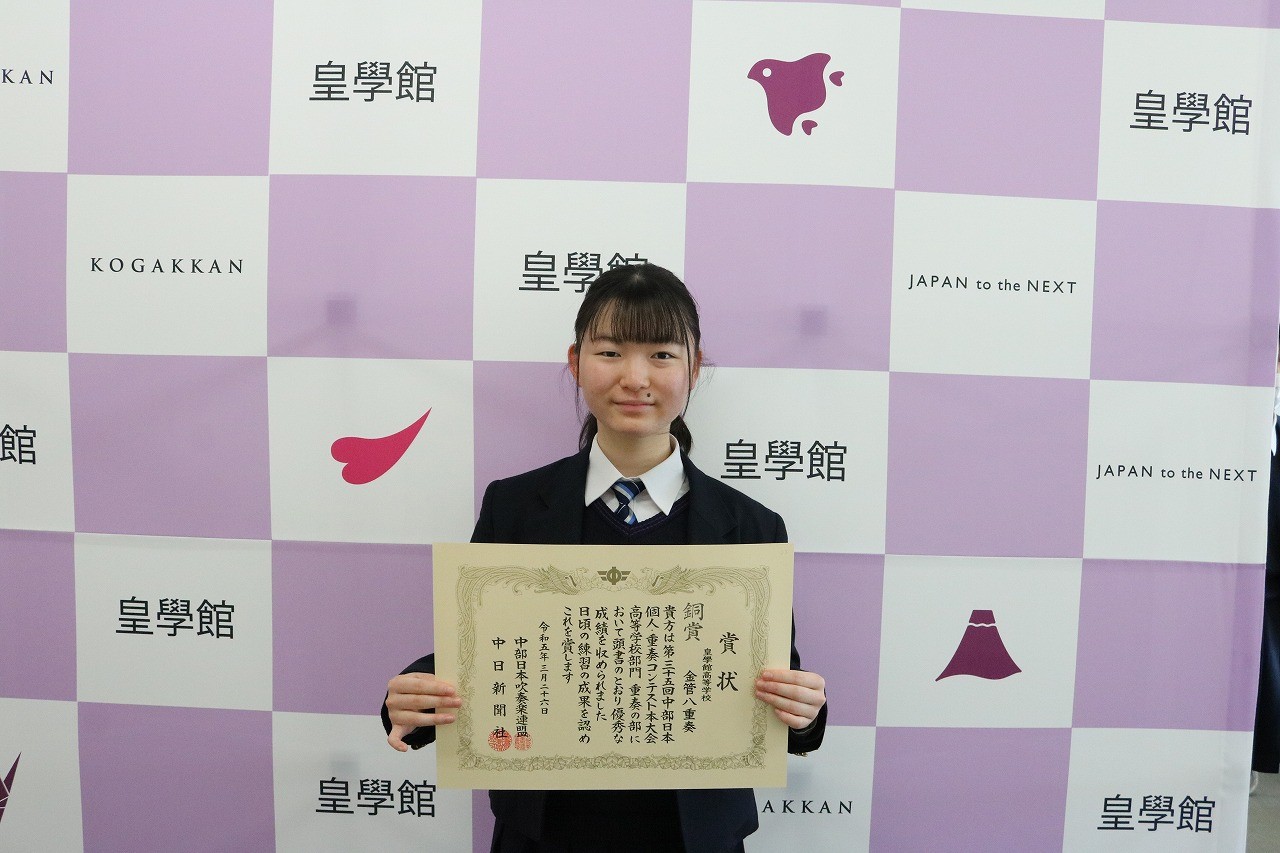 KAN
皇學館
皇學館
KOGAKKAN
皇學館
JAPAN to the NEXT
學館
皇學館
JAPAN to the NEXT
皇學館
皇學館
AKKAN
皇學館
賞状
皇學館高等学校
銅賞 金管八重奏
貴方は第三十五回中部日本
個人・重奏コンテスト本大会
高等学校部門 重奏の部に
おいて頭書のとおり優秀な
成績を収められました
日頃の練習の成果を認め
これを賞します
令和五年三月二十六日
中部日本吹奏楽連盟
中日新聞社